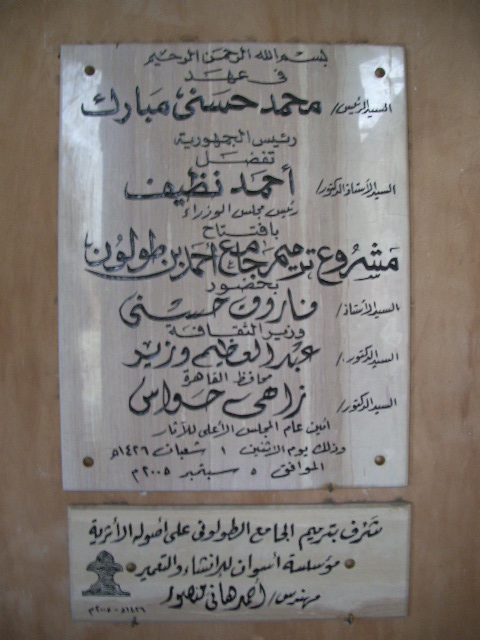 بسم الله الرحمن الرحيم
في عهد
السيد الرئيس/ محمد حسنى مبارك
رئيس الجمهورية
تفضل
السيد الأستاذ الدكتور/ أحمد نظيف
رئيس مجلس الوزراء
بافتتاح
مشروع ترميم جامع احمد بن طولون
بحضور
السيد الأستاذ/ فاروق حسنى
وزير الثقافة
السيد الدكتور/ عبد العظيم وزير
محافظ القاهرة
السيد الدكتور/ زاهى حواس
أمين عام المجلس الأعلى للآثار
وذلك يوم الاثنين ١ شعبان ١٤٢٦هـ
الموافق ٥ سبتمبر ٢٠٠٥م
شرف بترميم الجامع الطولونى على أصوله الأثرية
مؤسسة أسوان للإنشاء والتعمير
مهندس/ أحمد هانى منصور
١٤٢٦هـ-٢٠٠٥م